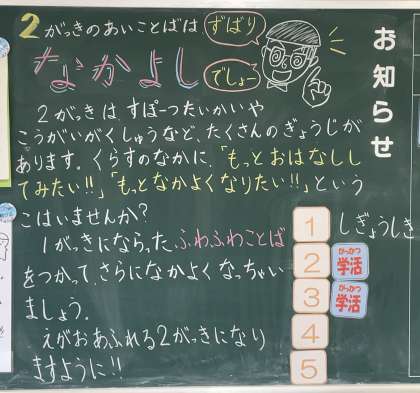 2がっきのあいことばは ずばり
なかよし でしょう
2がっきは、すぽーつたいかいや
こうがいがくしゅうなど、たくさんのぎょうじが
あります。くらすのなかに、「もっとおはなしし
てみたい!!」「もっとなかよくなりたい!!」という
こはいませんか?
1がっきにならったふわふわことば
をつかって、さらになかよくなっちゃい
ましょう。
えがおあふれる2がっきになり
ますように!!
お知らせ
1 しぎょうしき
2 がっかつ 学活
3 がっかつ 学活
4
5